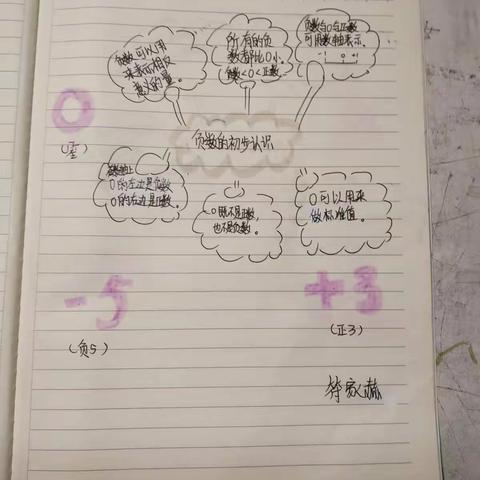 负数可以用
来表示相反
意义的量。
所有的负
数都比0小。
负数<0<正数
负数与0与正数
可用数轴表示。
0
(零)
负数的初步认识
数轴上
0的左边是负数
0的左边是正数。
0既不是正数,
也不是负数。
0可以用来
做标准值。
-5
(负5)
+3
(正3)